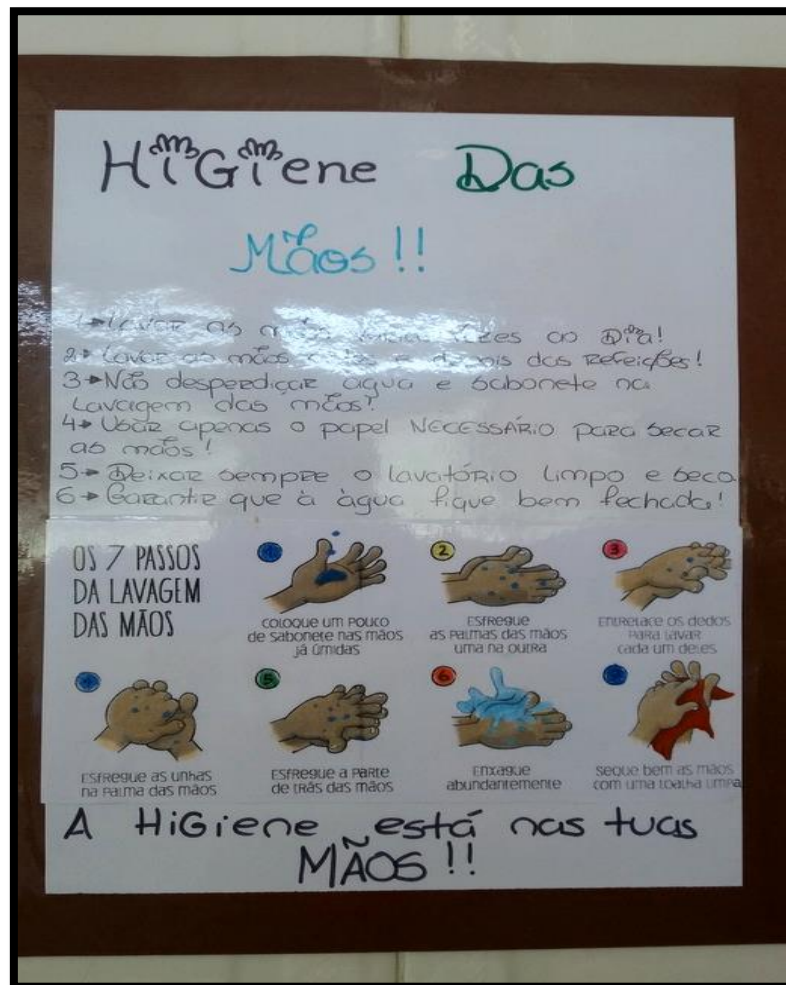 HiGiene Das
Mãos!!
1➔ Lavar as mãos várias vezes ao Dia!
2➔ Lavar as mãos antes e depois das Refeições!
3➔ Não desperdiçar água e sabonete na
Lavagem das mãos!
4➔ Usar apenas o papel NECESSÁRIO para secar
as mãos!
5➔ Deixar sempre o lavatório limpo e seco
6➔ Garantir que à àgua fique bem fechada!
OS 7 PASSOS
DA LAVAGEM
DAS MÃOS
1
COLOQUE UM POUCO
de sabonete nas mãos
já úmidas
2
ESFREGUE
as palmas das mãos
uma na outra
3
ENTRELACE OS DEDOS
PARA LAVAR
cada um deles
4
ESFREGUE as unhas
na palma das mãos
5
ESFREGUE a parte
de trás das mãos
6
ENXAGUE
abundantemente
7
SEQUE bem as mãos
com uma toalha limpa
A HiGiene está nas tuas
MÃOS!!